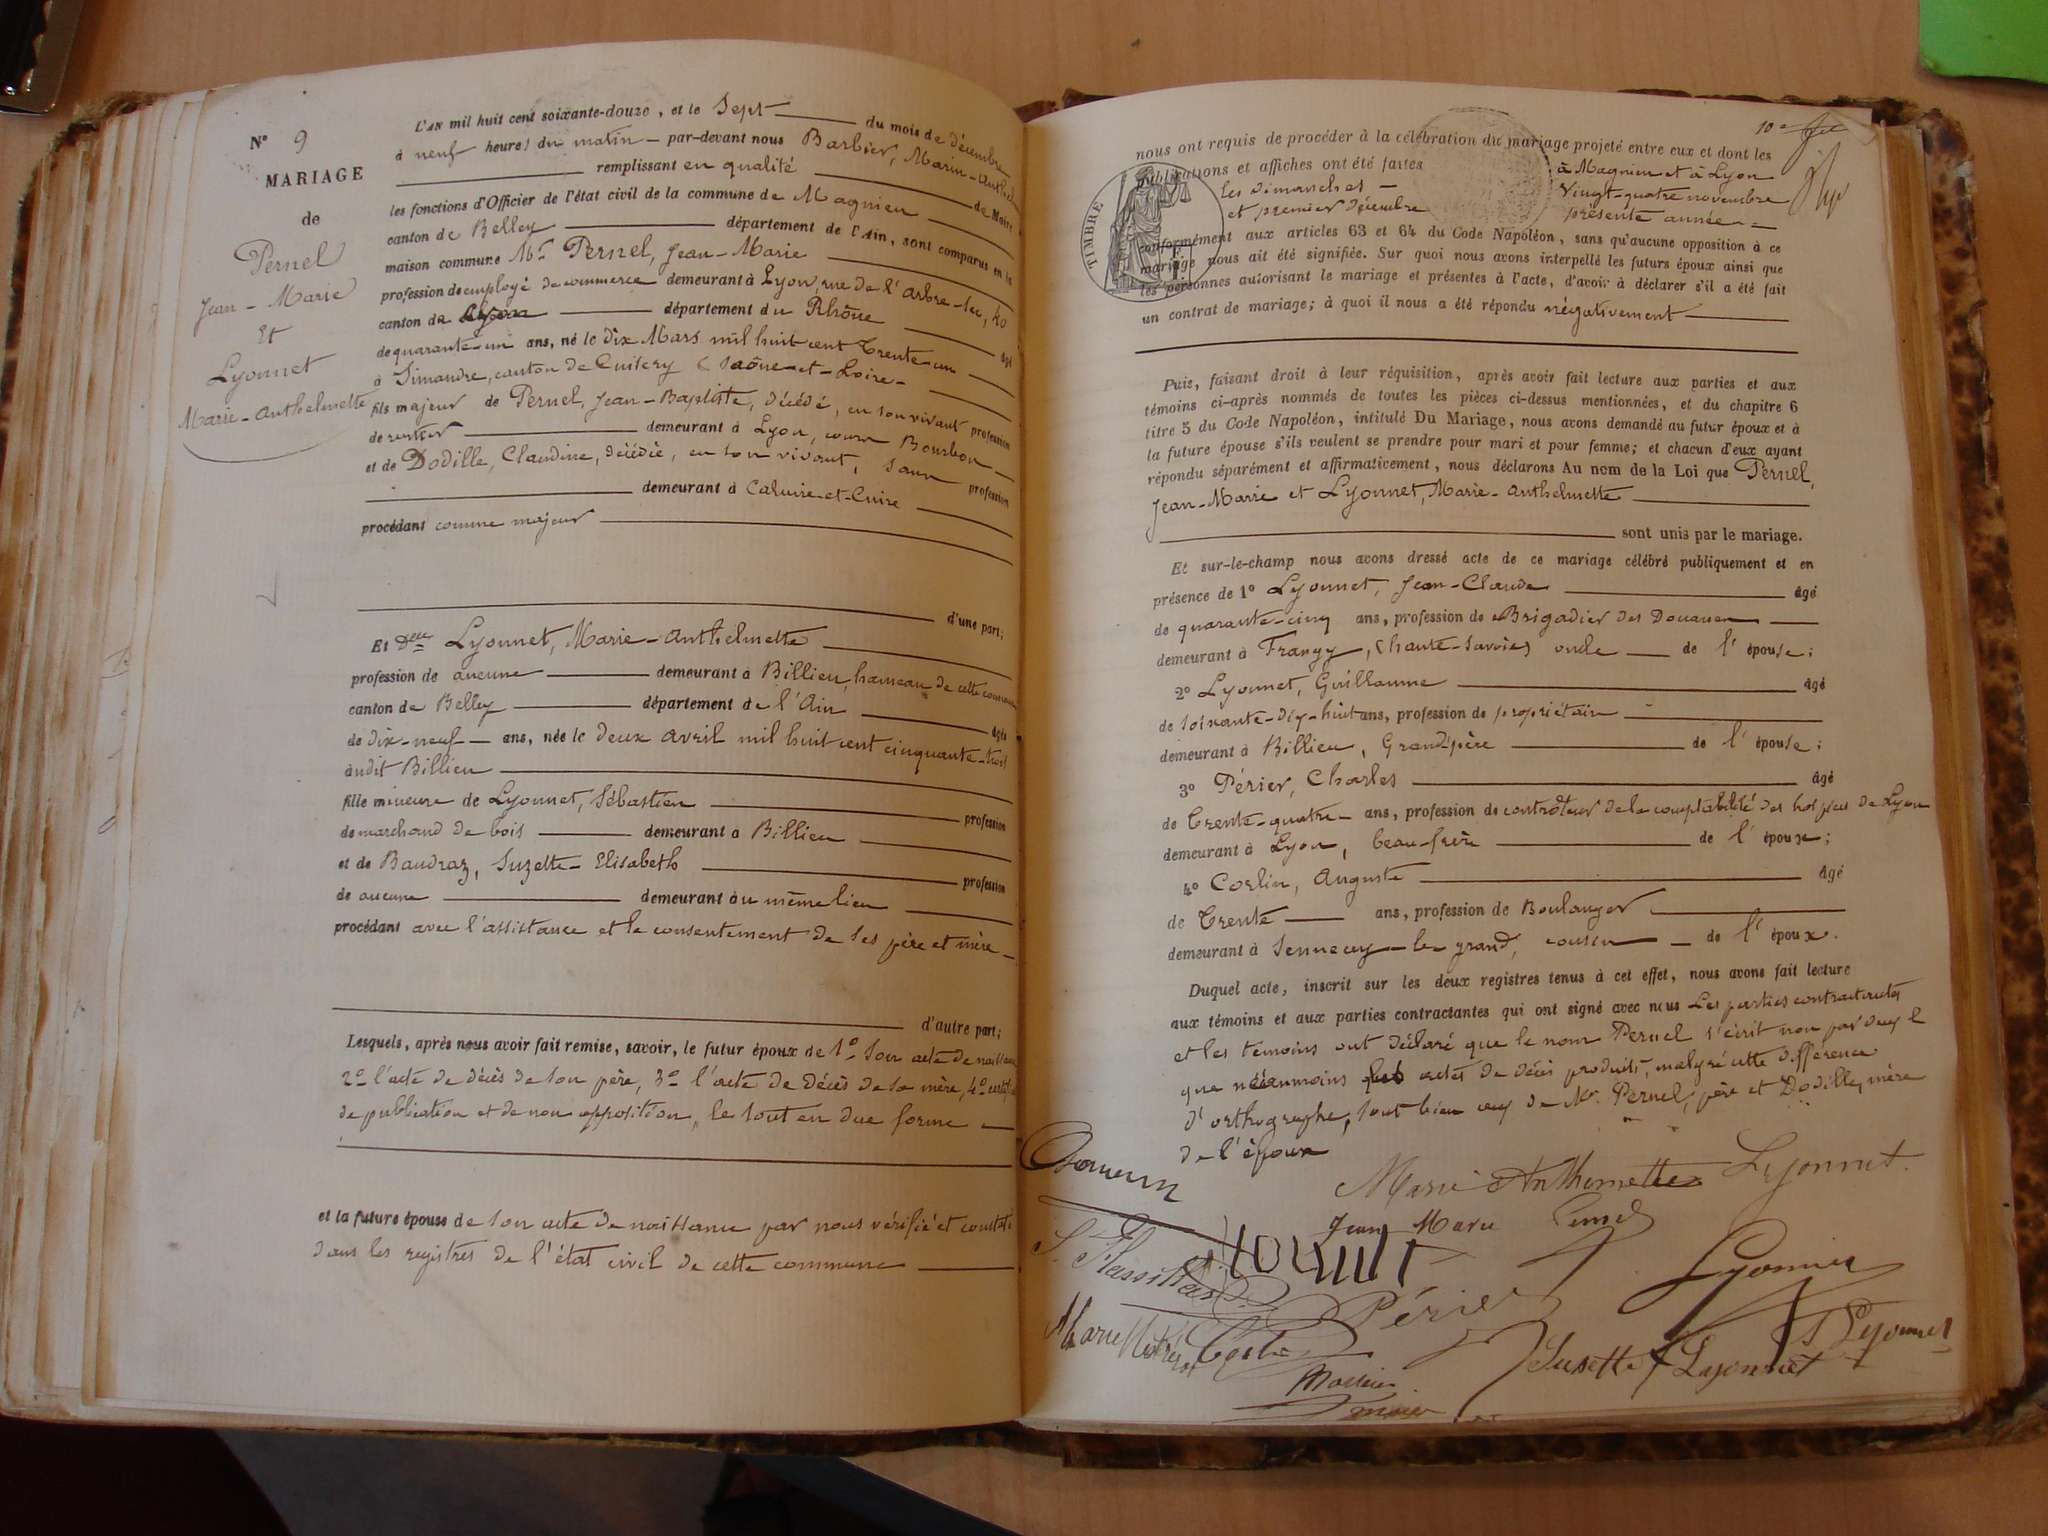 N° 9
MARIAGE
de
Pernel
Jean-Marie
Et
Lyonnet
Marie-Anthelmette
L'AN mil huit cent soixante-douze, et le Sept du mois de décembre
à neuf heures du matin par-devant nous Barbier, Marin-Anthelme
remplissant en qualité de Maire
les fonctions d'Officier de l'état civil de la commune de Magnieu
canton de Belley département de l'Ain, sont comparus en la
maison commune Mr Pernel, Jean-Marie
profession de employé de commerce demeurant à Lyon, rue de l'Arbre-sec, 40
canton de Lyon département du Rhône âgé
de quarante-un ans, né le dix Mars mil huit cent trente-un
à Simandre, canton de Cuisery (Saône-et-Loire
fils majeur de Pernel, Jean-Baptiste, décédé, en son vivant profession
de rentier demeurant à Lyon, cours Bourbon
et de Dodille, Claudine, décédée, en son vivant, sans profession
demeurant à Caluire-et-Cuire
procédant comme majeur
d'une part;
Et Delle Lyonnet, Marie-Anthelmette
profession de aucune demeurant à Billieu, hameau de cette commune
canton de Belley département de l'Ain âgée
de dix-neuf ans, née le deux avril mil huit cent cinquante-trois
àudit Billieu
fille mineure de Lyonnet, Sébastien profession
de marchand de bois demeurant à Billieu
et de Baudraz, Suzette-Elisabeth profession
de aucune demeurant àu même lieu
procédant avec l'assistance et le consentement de ses père et mère
d'autre part;
Lesquels, après nous avoir fait remise, savoir, le futur époux de 1° son acte de naissance
2° l'acte de décès de son père, 3° l'acte de décès de sa mère, 4°
de publication et de non opposition, le tout en due forme
et la future épouse de son acte de naissance par nous vérifié et constaté
dans les registres de l'état civil de cette commune
10e
nous ont requis de procéder à la célébration du mariage projeté entre eux et dont les
publications et affiches ont été faites à Magnieu et à Lyon
les dimanches vingt-quatre novembre
et premier décembre présente année
TIMBRE
conformément aux articles 63 et 64 du Code Napoléon, sans qu'aucune opposition à ce
mariage nous ait été signifiée. Sur quoi nous avons interpellé les futurs époux ainsi que
les personnes autorisant le mariage et présentes à l'acte, d'avoir à déclarer s'il a été fait
un contrat de mariage; à quoi il nous a été répondu négativement
Puis, faisant droit à leur réquisition, après avoir fait lecture aux parties et aux
témoins ci-après nommés de toutes les pièces ci-dessus mentionnées, et du chapitre 6
titre 5 du Code Napoléon, intitulé Du Mariage, nous avons demandé au futur époux et à
la future épouse s'ils veulent se prendre pour mari et pour femme; et chacun d'eux ayant
répondu séparément et affirmativement, nous déclarons Au nom de la Loi que Pernel,
Jean-Marie et Lyonnet, Marie-Anthelmette
sont unis par le mariage.
Et sur-le-champ nous avons dressé acte de ce mariage célébré publiquement et en
présence de 1° Lyonnet, Jean-Claude âgé
de quarante-cinq ans, profession de Brigadier des Douanes
demeurant à Frangy, (haute-Savoie) oncle de l'épouse;
2° Lyonnet, Guillaume âgé
de soixante-dix-huit ans, profession de propriétaire
demeurant à Billieu, Grand'père de l'épouse;
3° Périer, Charles âgé
de trente-quatre ans, profession de controleur de la comptabilité des hospices de Lyon
demeurant à Lyon, beau-frère de l'épouse;
4° Corlin, Auguste âgé
de trente ans, profession de Boulanger
demeurant à Sennecey-le-grand, cousin de l'époux.
Duquel acte, inscrit sur les deux registres tenus à cet effet, nous avons fait lecture
aux témoins et aux parties contractantes qui ont signé avec nous Les parties contractantes
et les témoins ont déclaré que le nom Pernel s'écrit non par deux l
que néanmoins les actes de décès produits, malgré cette différence
d'orthographe, sont bien ceux de Mr Pernel, père et Dodille, mère
de l'époux
Marie Anthemette Lyonnet
Jean Marie Pernel
Périer
Lyonnet
Lyonnet
Susette Lyonnet
Corlin
maire